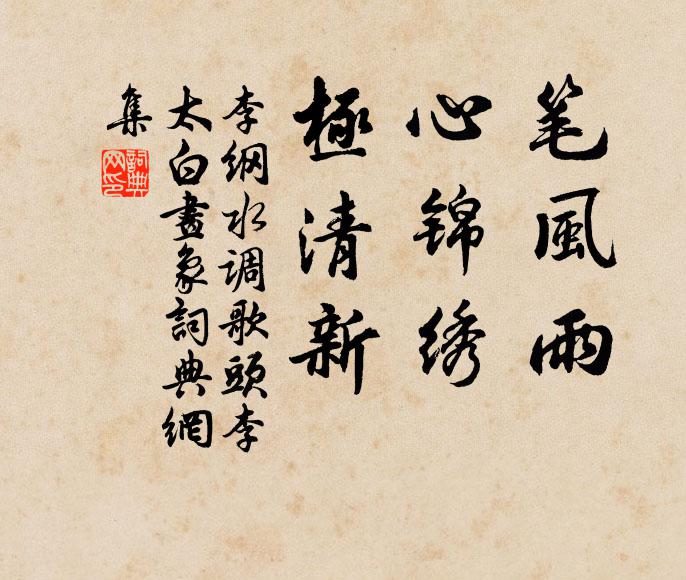 笔風雨
心锦绣
極清新
李纲水调歌頭李
太白畫象詞典網
集
詞典网印